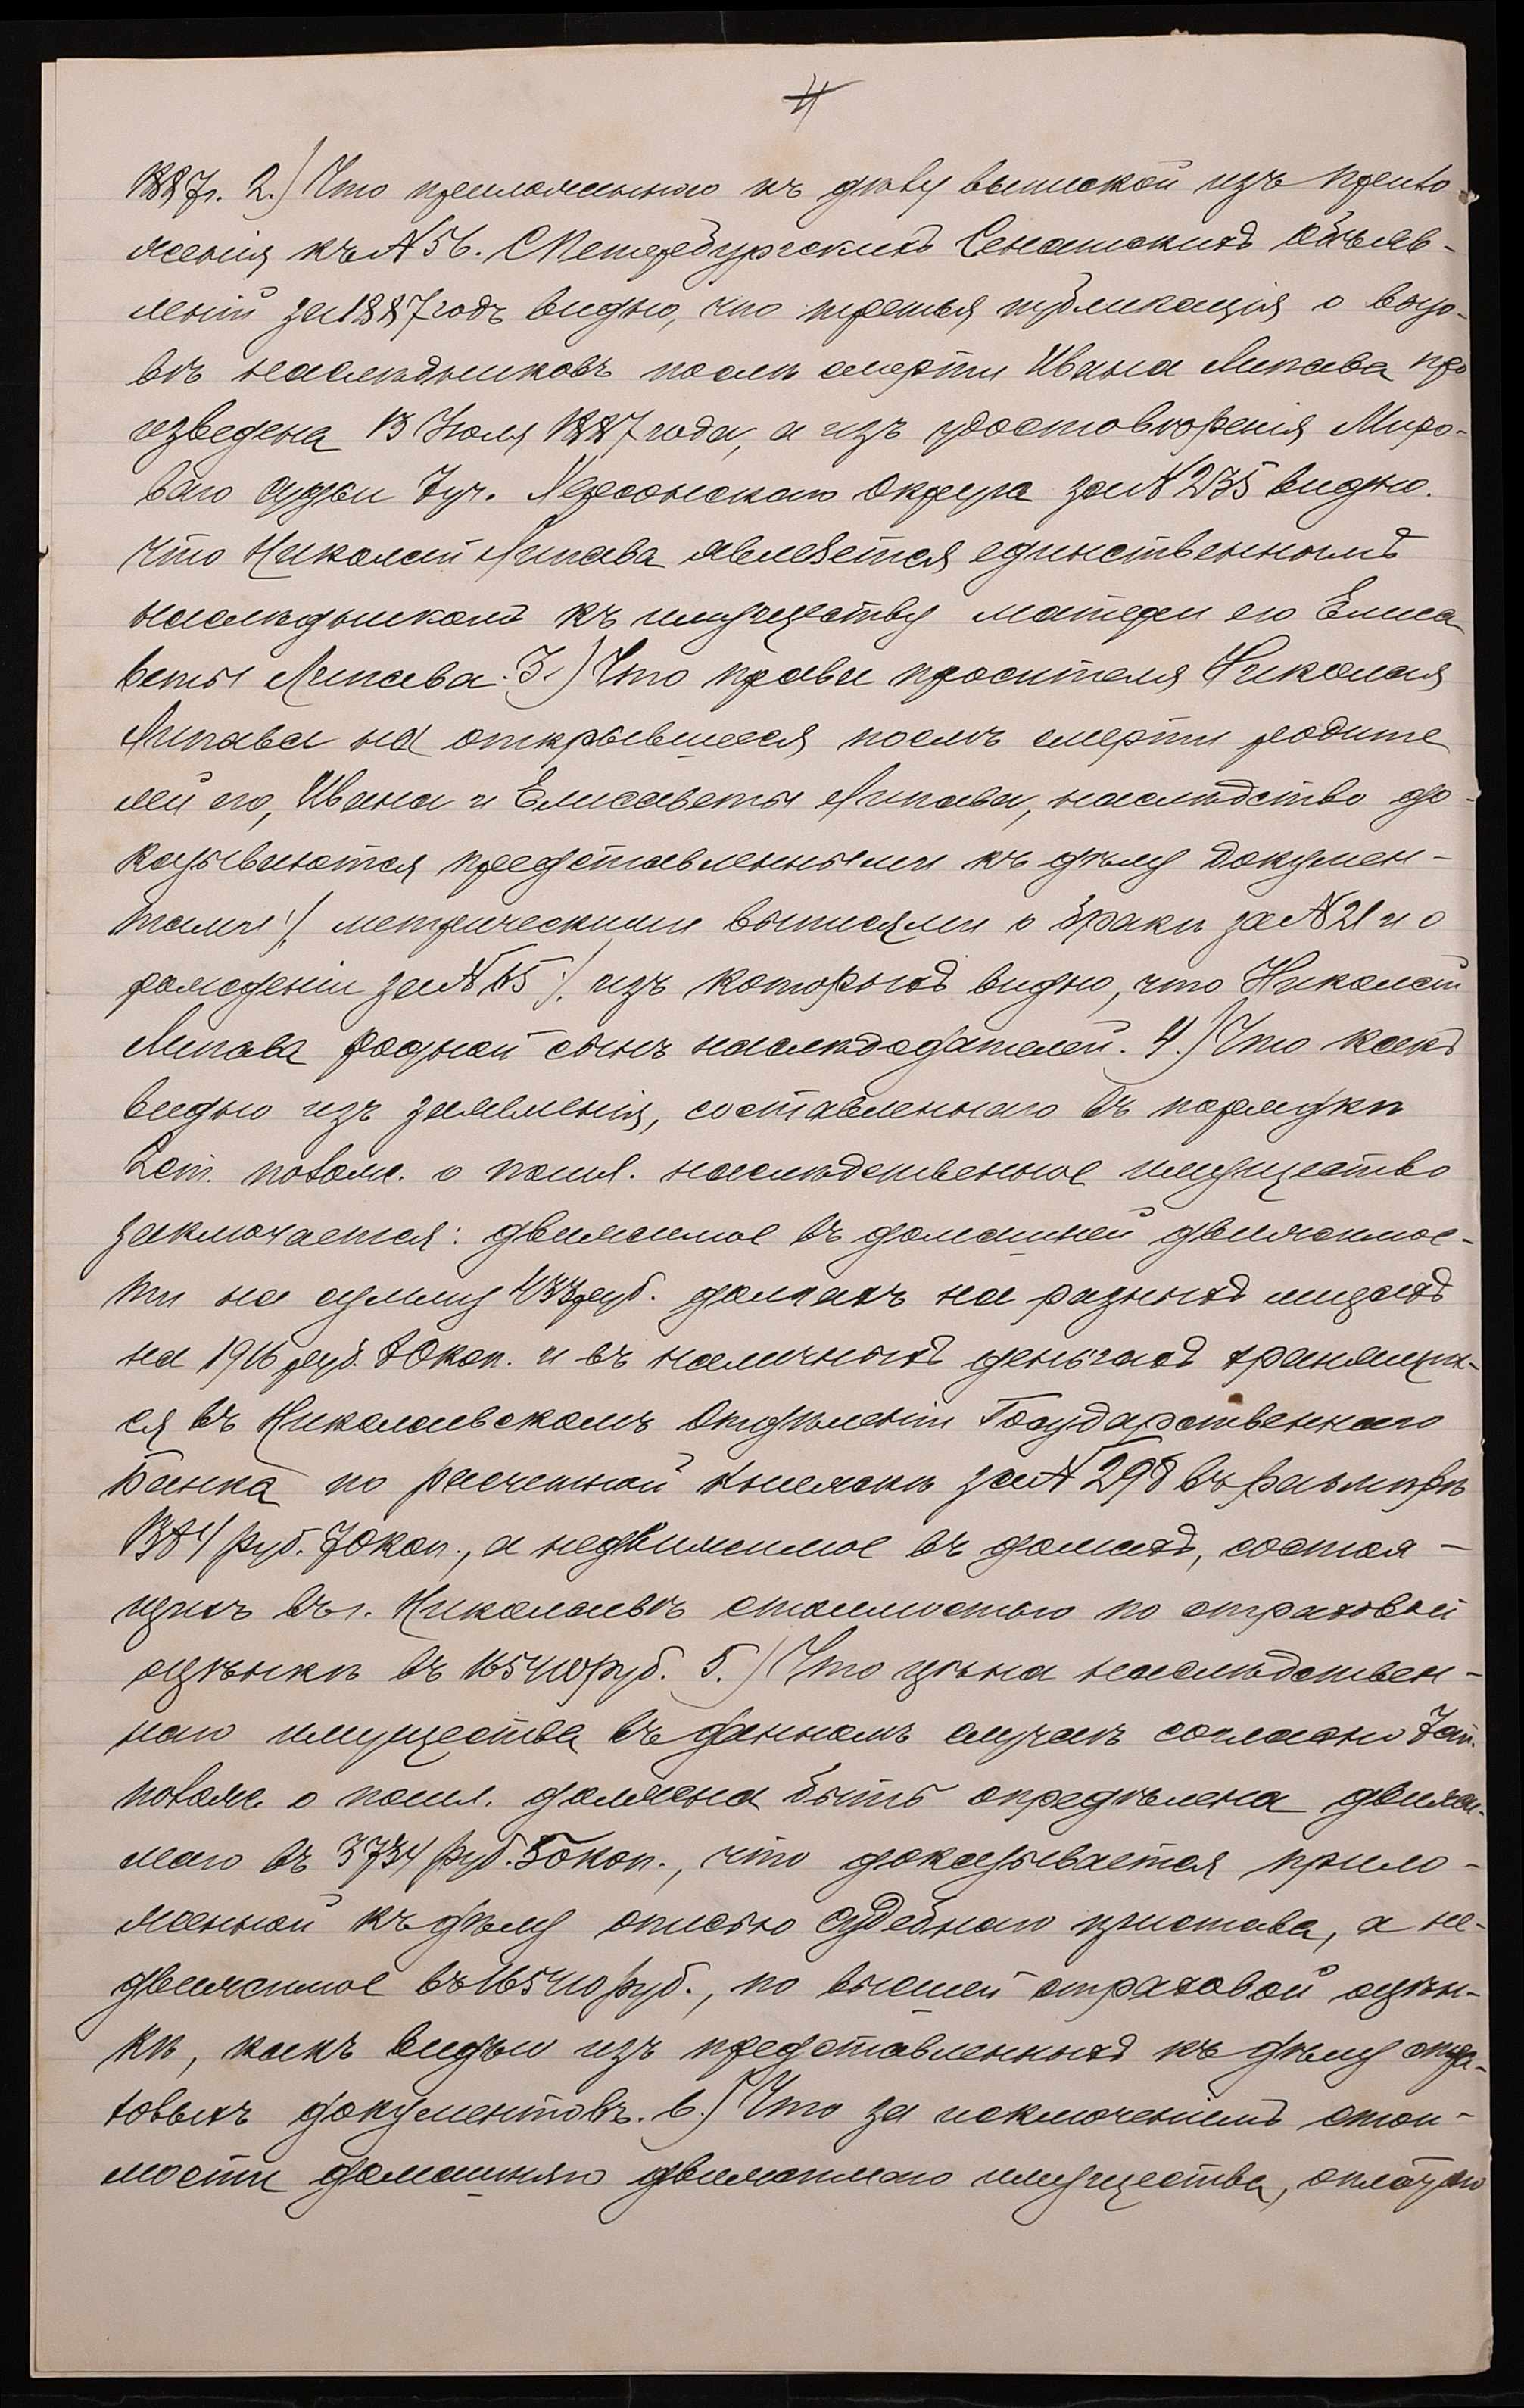 1887г. 2.) Что приложенною къ дѣлу выпиской изъ прило-
женія къ N 56. СПетербургскихъ Сенатскихъ Объяв-
леній за 1887 годъ видно, что третья публикація о вызо-
вѣ наслѣдниковъ послѣ смерти Ивана Липава про
изведена 13 Іюля 1887 года, а изъ удостовѣренія Миро-
ваго Судьи 7 уч. Херсонскаго Округа за N 235 видно.
что Николай Липава является единственнымъ
наслѣдникомъ къ имуществу матери его Елиса
веты Липава. 3.) Что права просителя Николая
Липава на открывшееся послѣ смерти родите
лей его, Ивана и Елисаветы Липава, наслѣдство до-
казываются представленными къ дѣлу докумен-
тами:/, метрическими выписями о бракѣ за N 21 и о
рожденіи за N 65 /. изъ которыхъ видно, что Николай
Липава родной сынъ наслѣдодателей. 4.) Что какъ
видно изъ заявленія, составленнаго въ порядкѣ
2 ст. полож. о пошл. наслѣдственное имущество
заключается: движимое въ домашней движимос-
ти на сумму 433 руб. долгахъ на разныхъ лицахъ
на 1916 руб. 80 коп. и въ наличныхъ деньгахъ хранящих-
ся въ Николаевскомъ Отдѣленіи Государственнаго
Банка по расчетной книжкѣ за N 298 въ размѣрѣ
1384 руб. 70 коп., а недвижимое въ домахъ, состоя-
щихъ въ г. Николаевѣ стоимостью по страховой
оцѣнкѣ въ 16540 руб. 5.) Что цѣна наслѣдствен-
наго имущества въ данномъ случаѣ согласно 7 ст.
полож. о пошл. должна быть опредѣлена движи-
маго въ 3734 руб. 50 коп., что доказывается прило-
женной къ дѣлу описью Судебнаго пристава, а не-
движимое въ 16540 руб., по высшей страховой оцѣн-
кѣ, какъ видно изъ представленныхъ къ дѣлу стра-
ховыхъ документовъ. 6.) Что за исключеніемъ стои-
мости домашняго движимаго имущества,